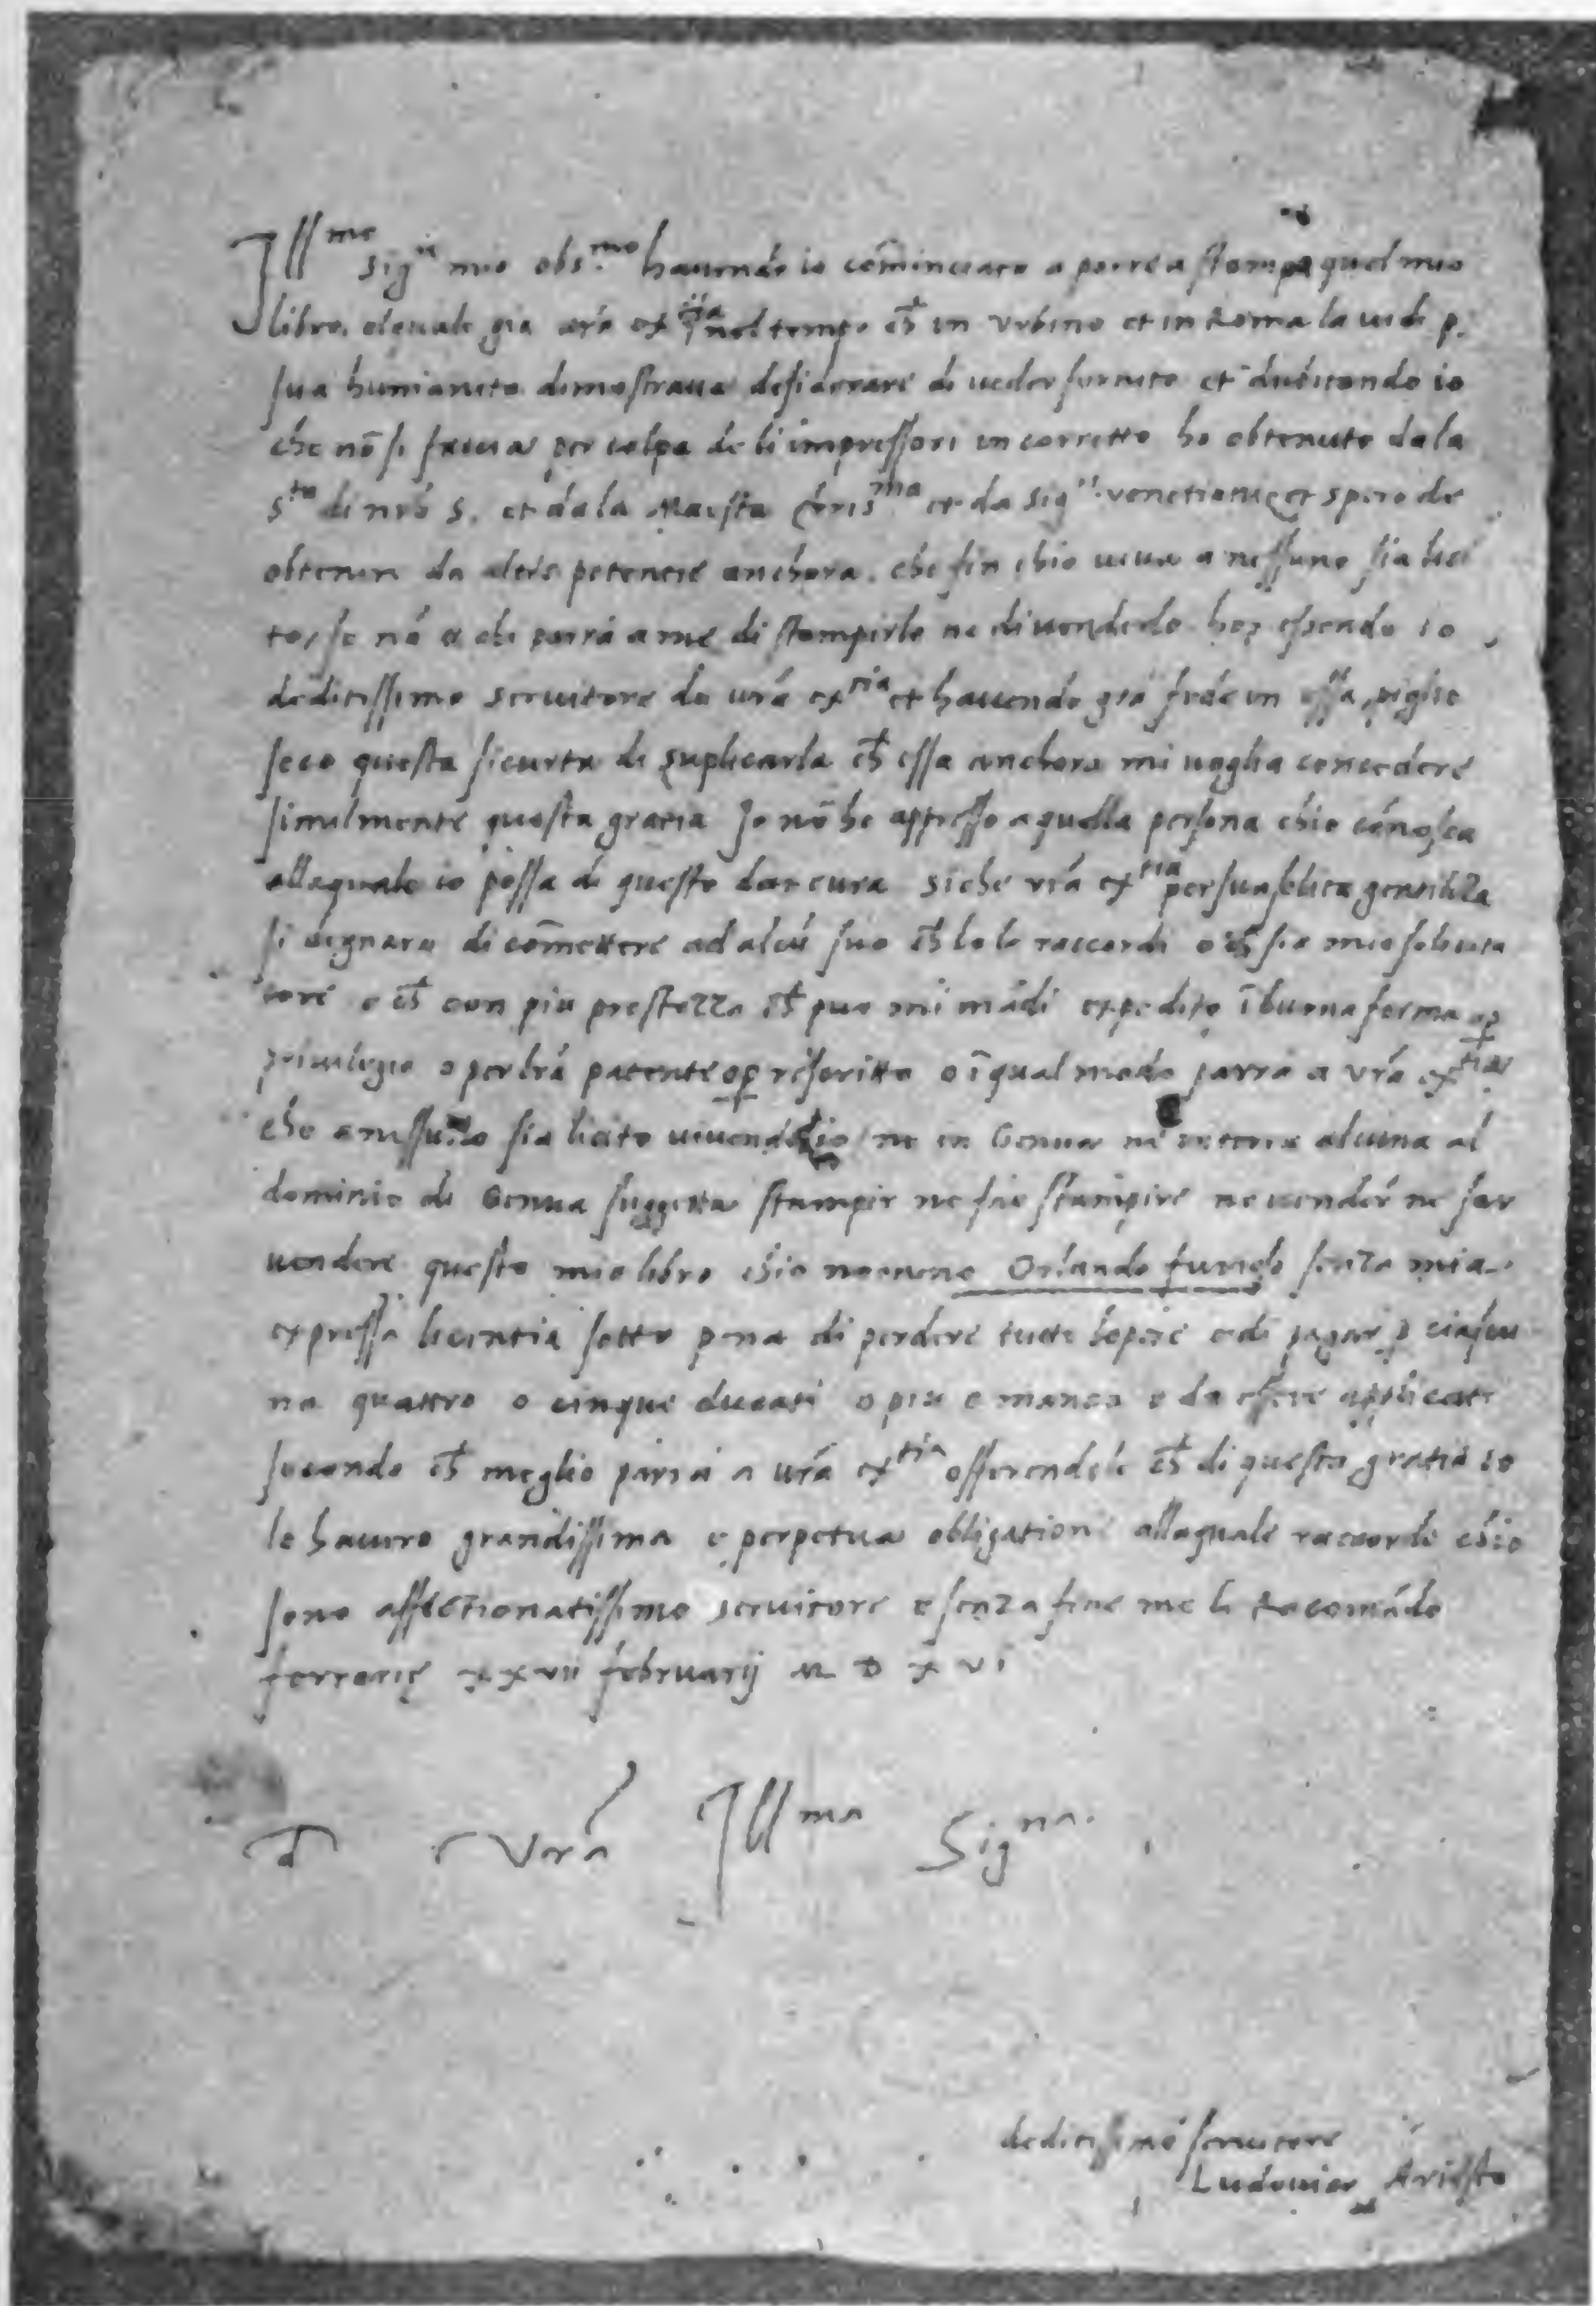 Ill^me Sig^re mio obs.^mo havendo io cōminciato a porre a stampa quel mio
libro. elquale gia vrā ex^tia nel tempo ch̄ in Urbino et in Roma la vidi p.
sua humanita dimostrava desiderare di veder fornito et dubitando io
che nō si faccia per colpa de li impressori incorretto ho obtenuto da la
S^ta di nrō S. et da la Maesta Chris^ma et da Sig^ri venetiani et spero de
obtener da altre potentie anchora. che fin chio viva a nessuno sia lici
to, se nō a chi parrà a me di stamparlo ne di venderlo hor essendo io
deditissimo servitore de vrā ex^tia et havendo gra fede in essa, piglio
seco questa sicurta di suplicarla ch̄ essa anchora mi voglia concedere
similmente questa gratia Io nō ho appresso a quella persona chio cōnosca
allaquale io possa di questo dar cura siche vrā ex^tia per sua solita gentilezza
si degnara di cōmettere ad alcū suo ch̄ lo le raccordi o ch̄ sia mio solicita
tore e ch̄ con piu prestezza ch̄ puo mi mādi expedito ī buona forma o p
privilegio o per lrā patente o p rescritto o ī qual modo parra a vrā ex^tia
che a nessuno sia licito vivendo io ne in Genua ne in terra alcuna al
dominio di Genua suggetta stampir ne far stampire ne vender ne far
vendere questo mio libro chio nomino Orlando furioso senza mia
expressa licentia sotto pena di perdere tutte lopere e di pagar p ciascu
na quattro o cinque ducati o piu o manco e da essere applicati
secondo ch̄ meglio parrà a vrā ex^tia offerendole ch̄ di questa gratia io
le havero grandissima e perpetua obligatione allaquale raccordo chio
sono affectionatissimo servitore e senza fine me le racomādo
ferrarie xxvii februarij M D X VI
D Vrā Ill^ma Sig^na.
deditissimo servitore
Ludovico Ariosto